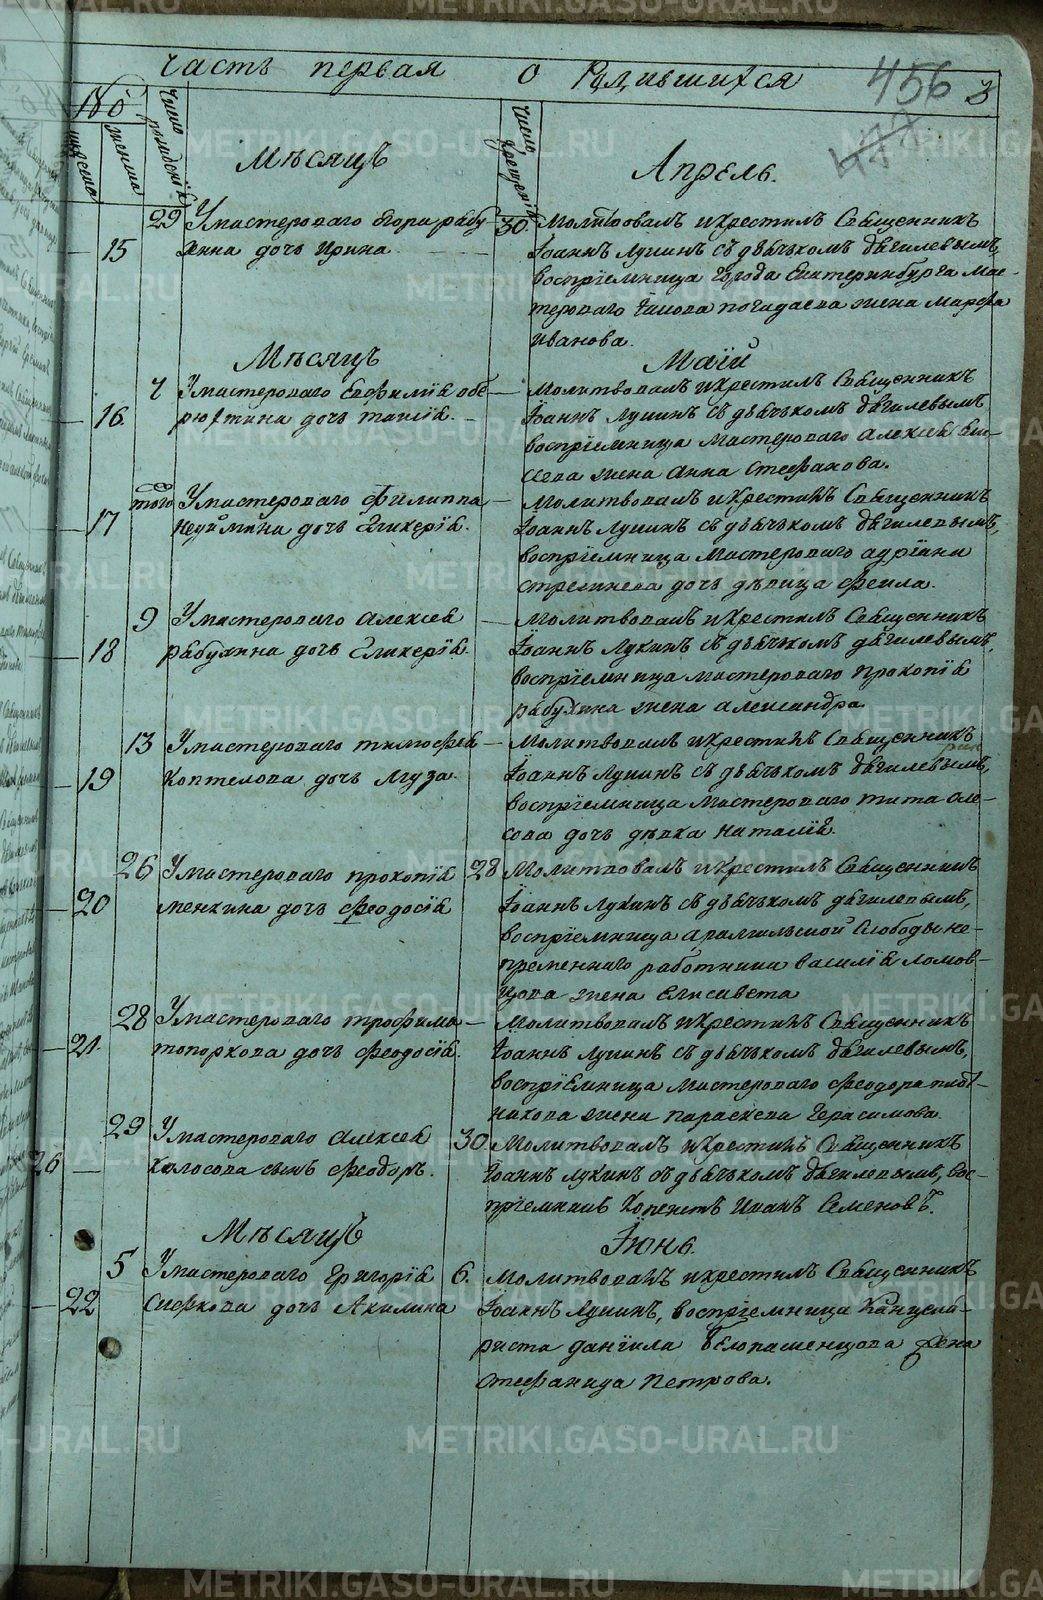 часть первая о Родившихся 456 3
№
Число рождения
Число крещения
мужеска
женска
Мѣсяцъ Апрель.
29 У мастероваго Егора рабу- 30. Молитвовалъ и крестилъ Священникъ
15 хина дочь Ирина Іоаннъ Лукинъ съ дьячкомъ дягилевымъ,
воспріемница города Екатеринбурга Мас-
тероваго погадаева жена Марфа
Иванова.
Мѣсяцъ Маій
У мастероваго Евфимія обе- Молитвовалъ и крестилъ Священникъ
16. рюхтина дочь таисія. Іоаннъ Лукинъ съ дьячкомъ дягилевымъ
воспріемница мастероваго Алексея
жена Анна Стефанова.
того У мастероваго Филиппа Молитвовалъ и крестилъ Священникъ
17 дочь Гликерія. Іоаннъ Лукинъ съ дьячкомъ дягилевымъ,
воспріемница мастероваго адріана
дочь дѣвица Фекла.
9 У мастероваго Алексея Молитвовалъ и крестилъ Священникъ
18 рабухина дочь Гликерія. Іоаннъ Лукинъ съ дьячкомъ дягилевымъ,
воспріемница мастероваго прокопія
рабухина жена александра.
13 У мастероваго тимофея Молитвовалъ и крестилъ Священникъ
19 коптелова дочь Іоаннъ Лукинъ съ дьячкомъ дягилевымъ,
воспріемница мастероваго тита оле-
сова дочь дѣвка наталія.
26 У мастероваго прокопія 28 Молитвовалъ и крестилъ Священникъ
20 менкина дочь Феодосія Іоаннъ Лукинъ съ дьячкомъ дягилевымъ,
воспріемница арамильской Слободы не-
пременнаго работника василія ломов-
цова жена Елисавета
28 У мастероваго трофима Молитвовалъ и крестилъ Священникъ
21. топоркова дочь Феодосія. Іоаннъ Лукинъ съ дьячкомъ дягилевымъ,
воспріемница мастероваго феодора плот-
никова жена параскева Герасимова
29 У мастероваго Алексея 30. Молитвовалъ и крестилъ Священникъ
26 колосова сынъ Феодоръ. Іоаннъ Лукинъ съ дьячкомъ дягилевымъ, вос-
пріемникъ Иванъ Семеновъ.
Мѣсяцъ Іюнь.
5 У мастероваго Григорія 6. Молитвовалъ и крестилъ Священникъ
22 дочь Акилина Іоаннъ Лукинъ, воспріемница Канцеля-
риста даніила Белопашенцова жена
Стефанида Петрова.
METRIKI.GASO-URAL.RU